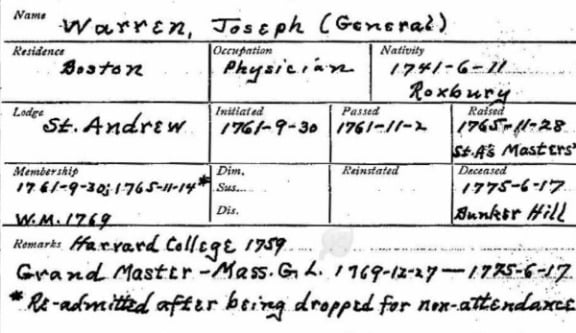 Name Warren, Joseph (General)
Residence Occupation Nativity
Boston Physician 1741-6-11
Roxbury
Lodge Initiated Passed Raised
St. Andrew 1761-9-30 1761-11-2 1765-11-28
St.A's Masters'
Membership Dim. Reinstated Deceased
1761-9-30; 1765-11-14* Sus... 1775-6-17
W.M. 1769 Dis. Bunker Hill
Remarks Harvard College 1759
Grand Master - Mass. G. L. 1769-12-27 — 1775-6-17
* Re-admitted after being dropped for non-attendance